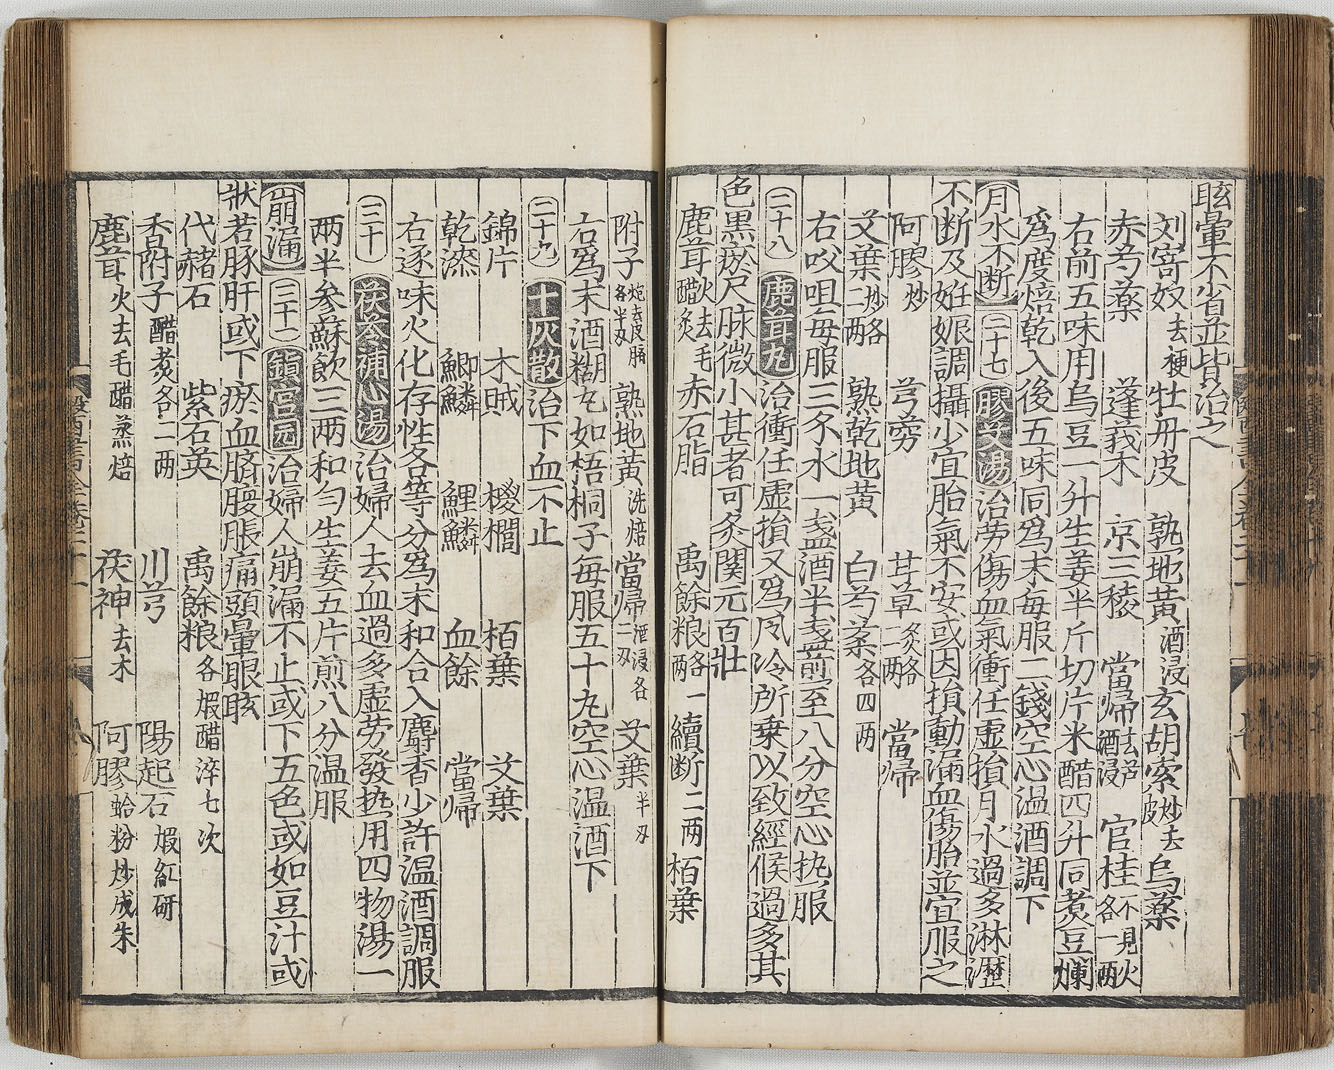 眩暈不省並皆治之
刘寄奴去梗 牡丹皮 熟地黄酒浸 玄胡索炒去皮 烏藥
赤芍藥 蓬莪木 京三稜 當帰去芦酒浸 官桂不見火各一两
右前五味用烏豆一升生姜半斤切片米醋四升同煮豆爛
爲度焙乾入後五味同爲末毎服二錢空心温酒調下
月水不断 二十七 膠艾湯 治劳傷血氣衝任虚損月水過多淋瀝
不断及妊娠調攝少宜胎氣不安或因損動漏血傷胎並宜服之
阿膠炒 芎藭 甘草炙各二两 當帰
艾葉炒各二两 熟乾地黄 白芍藥各四两
右㕮咀毎服三大水一盞酒半盞煎至八分空心热服
二十八 鹿茸丸 治衝任虚損又爲风冷所乗以致經候過多其
色黒瘀尺脉微小甚者可灸関元百壮
鹿茸火去毛醋炙 赤石脂 禹餘粮各一两 續断二两 栢葉
附子炮去皮臍各半刄 熟地黄洗焙 當帰酒浸各二刄 艾葉半刄
右爲末酒糊丸如梧桐子毎服五十丸空心温酒下
二十九 十灰散 治下血不止
錦片 木賊 椶櫚 栢葉 艾葉
乾㓒 鯽鱗 鯉鱗 血餘 當帰
右逐味火化存性各等分爲末和合入麝香少許温酒調服
三十 茯苓補心湯 治婦人去血過多虚劳發热用四物湯一
两半参蘇飲三两和匀生姜五片煎八分温服
崩漏 三十一 鎮宫园 治婦人崩漏不止或下五色或如豆汁或
狀若豚肝或下瘀血臍腹脹痛頭暈眼眩
代赭石 紫石英 禹餘粮各煆醋淬七次
香附子醋煮各二两 川芎 陽起石煆紅研
鹿茸火去毛醋蒸焙 茯神去木 阿膠蛤粉炒成朱